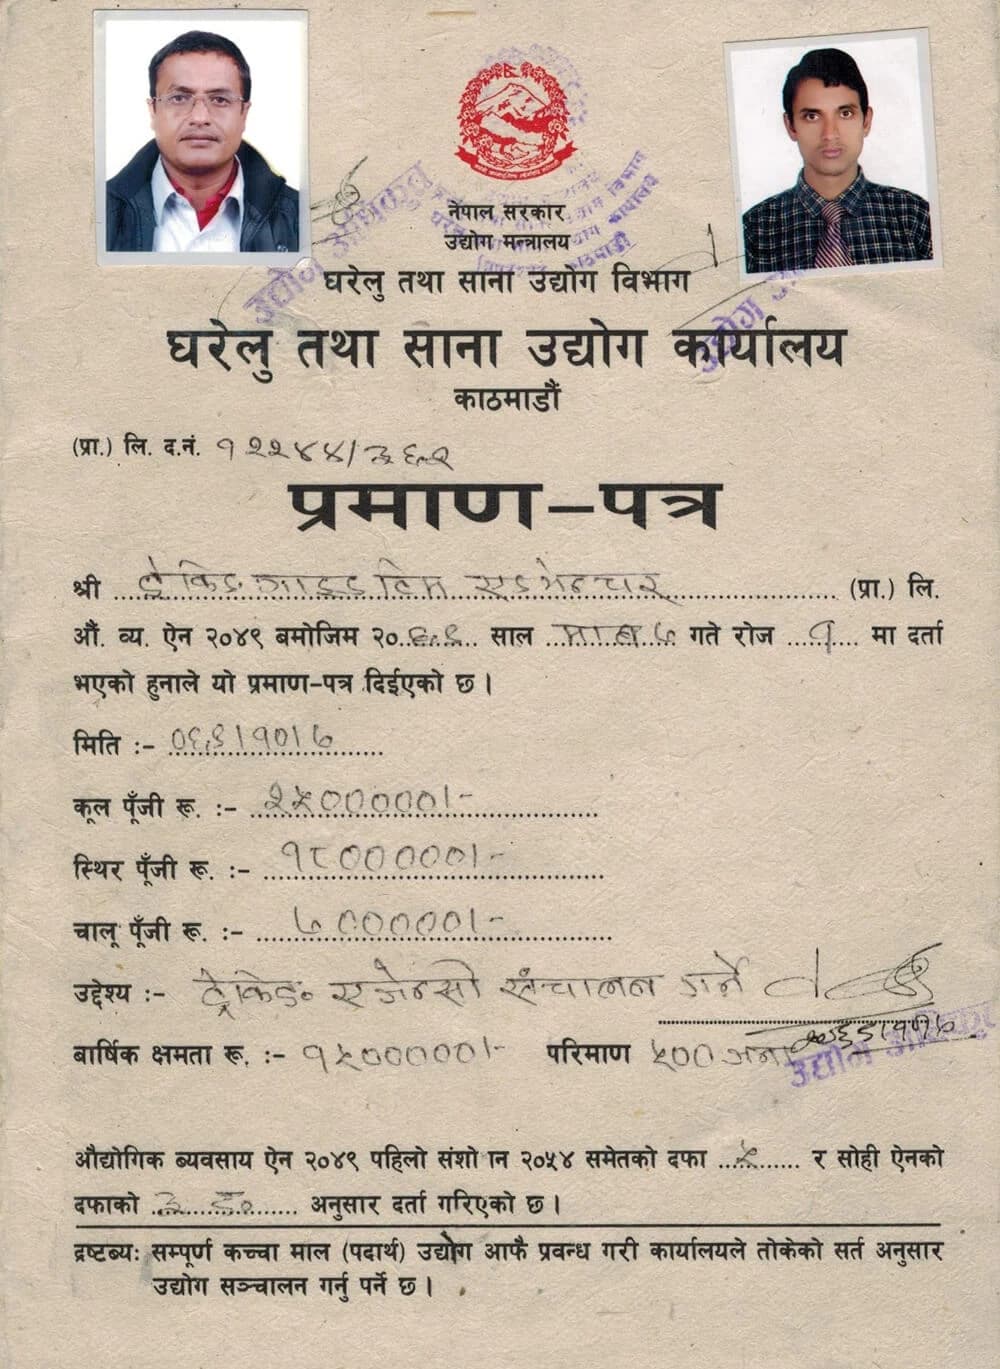 नेपाल सरकार
उद्योग मन्त्रालय
घरेलु तथा साना उद्योग विभाग
घरेलु तथा साना उद्योग कार्यालय
काठमाडौं
(प्रा.) लि. द.नं. १२२४४/३६९
प्रमाण-पत्र
श्री ट्रेकिङ गाइड टिम एडभेन्चर (प्रा.) लि.
औं. व्य. ऐन २०४९ बमोजिम २०६६ साल माघ ७ गते रोज १ मा दर्ता
भएको हुनाले यो प्रमाण-पत्र दिईएको छ ।
मिति :- ०६६।१०।७
कूल पूँजी रू. :- २५०००००।-
स्थिर पूँजी रू. :- १८०००००।-
चालू पूँजी रू. :- ७०००००।-
उद्देश्य :- ट्रेकिङ एजेन्सी संचालन गर्ने
बार्षिक क्षमता रू. :- १५०००००।- परिमाण ५०० जना
उद्योग अधिकृत
औद्योगिक ब्यवसाय ऐन २०४९ पहिलो संशो ान २०५४ समेतको दफा ५ र सोही ऐनको
दफाको ३ अनुसार दर्ता गरिएको छ ।
द्रष्टब्यः सम्पूर्ण कच्चा माल (पदार्थ) उद्योग आफै प्रवन्ध गरी कार्यालयले तोकेको सर्त अनुसार
उद्योग सञ्चालन गर्नु पर्ने छ ।